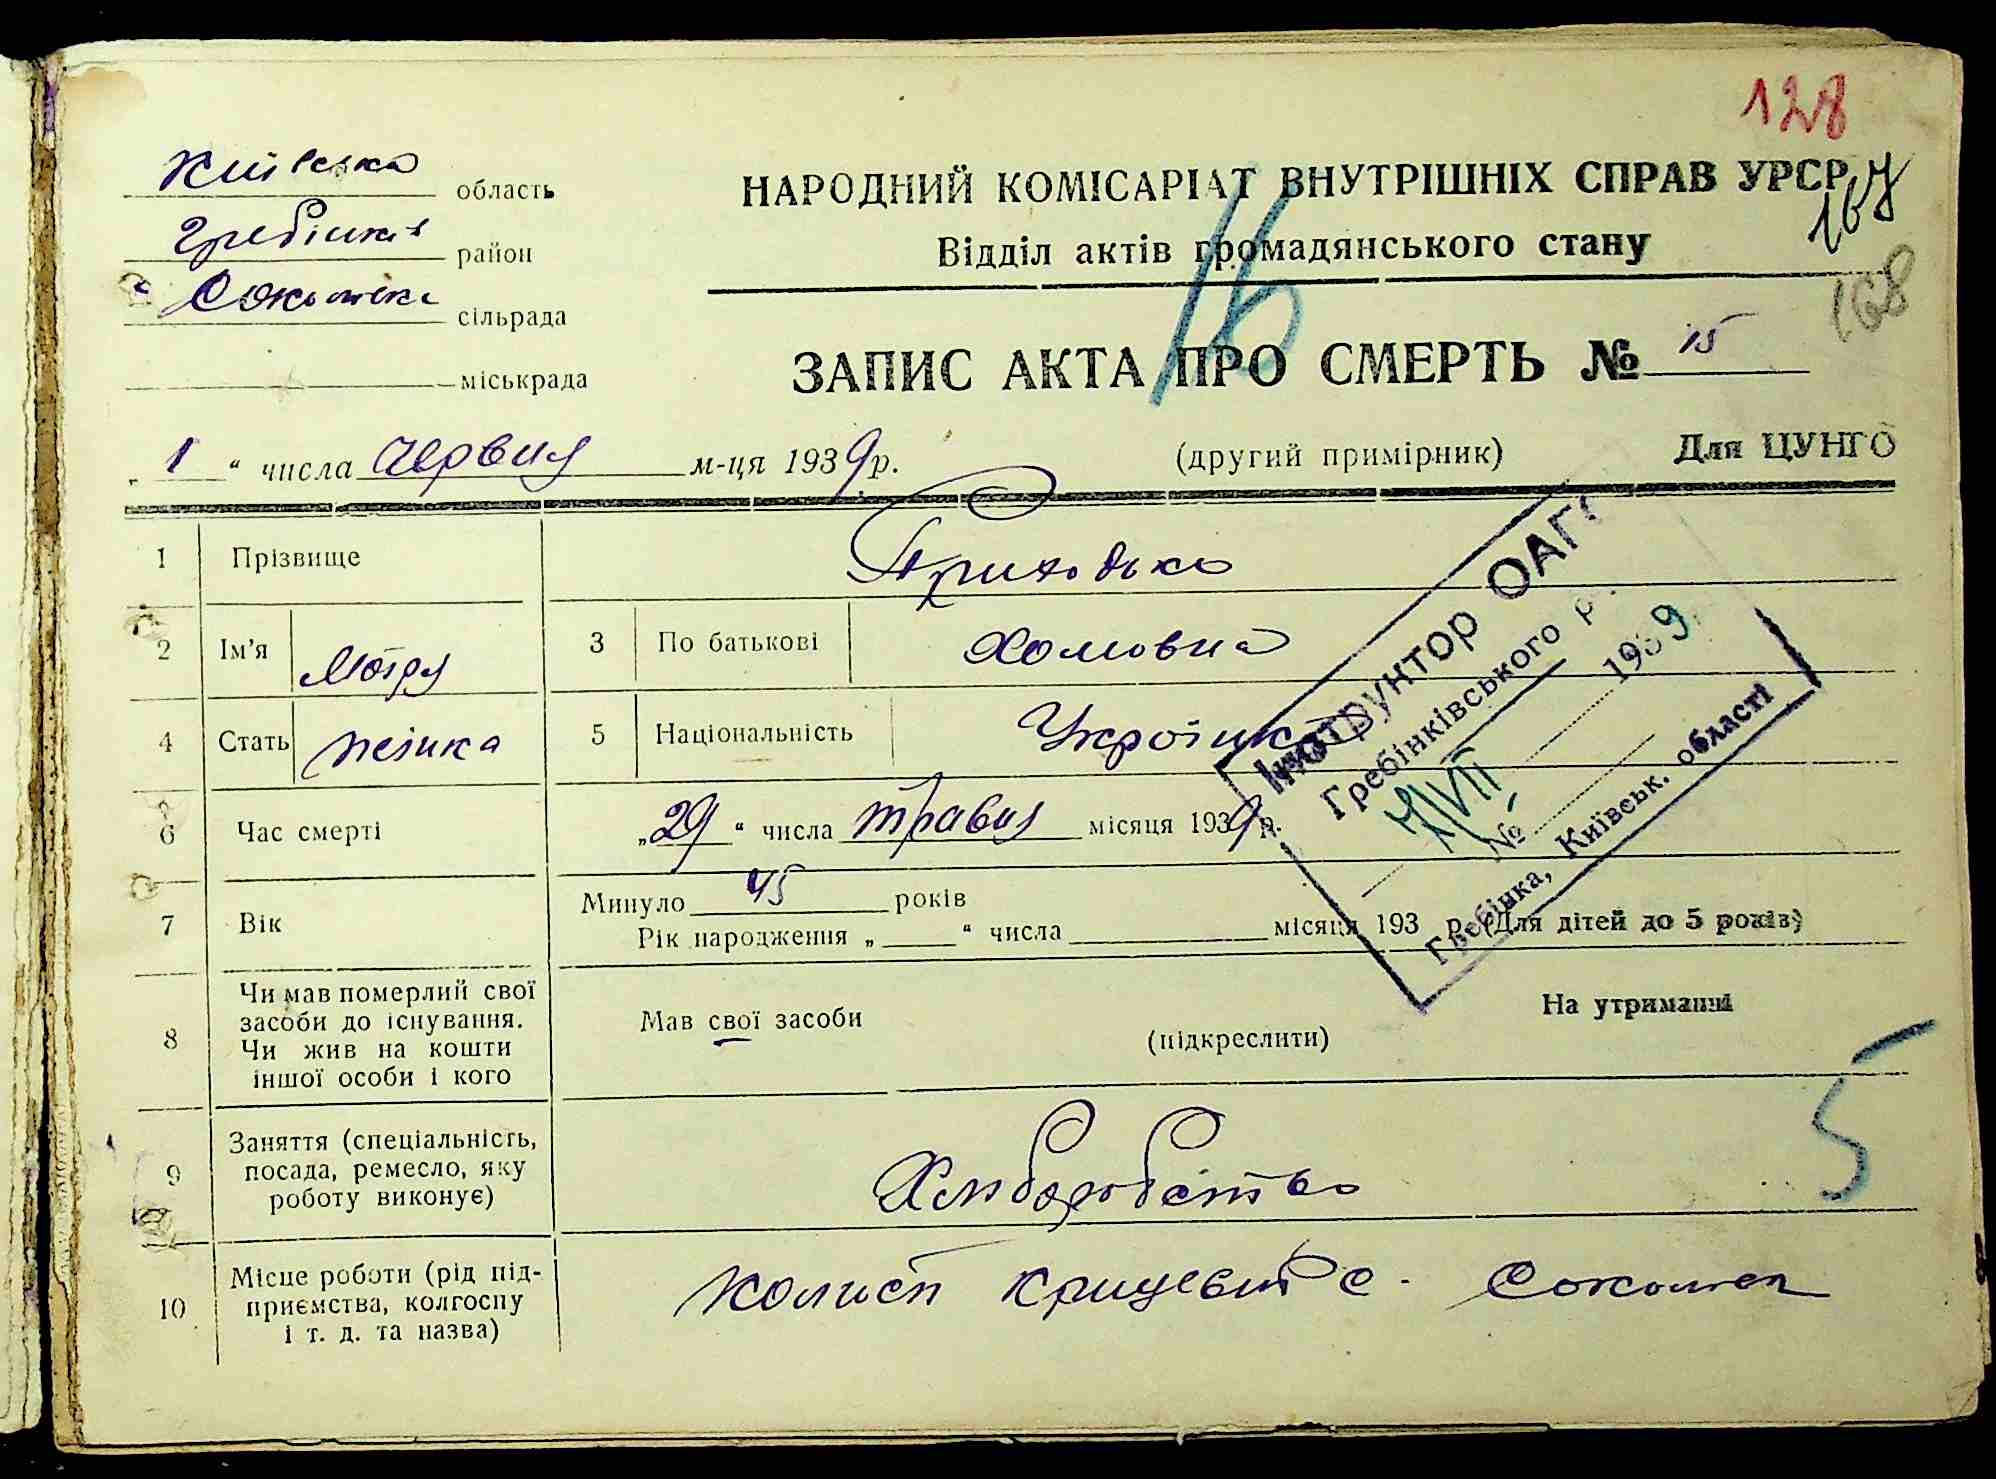 128
Київська область
НАРОДНИЙ КОМІСАРІАТ ВНУТРІШНІХ СПРАВ УРСР
167
Гребінків район
Відділ актів громадянського стану
сільрада
168
16
міськрада
ЗАПИС АКТА ПРО СМЕРТЬ № 15
„ 1 “ числа червня м-ця 1939 р. (другий примірник) Для ЦУНГО
1 Прізвище Приходько
2 Ім'я Мотря 3 По батькові Хомовна
4 Стать жінка 5 Національність Українка
6 Час смерті „29“ числа травня місяця 1939 р.
7 Вік Минуло 45 років
Рік народження „ “ числа місяця 193 р. (Для дітей до 5 років)
Інструктор ОАГС
Гребінківського р.
7/VII 1939
№
Гребінка, Київськ. області
8 Чи мав померлий свої
засоби до існування.
Чи жив на кошти
іншої особи і кого
Мав свої засоби (підкреслити) На утриманні
5
9 Заняття (спеціальність,
посада, ремесло, яку
роботу виконує)
Хліборобство
10 Місце роботи (рід під-
приємства, колгоспу
і т. д. та назва)
с.